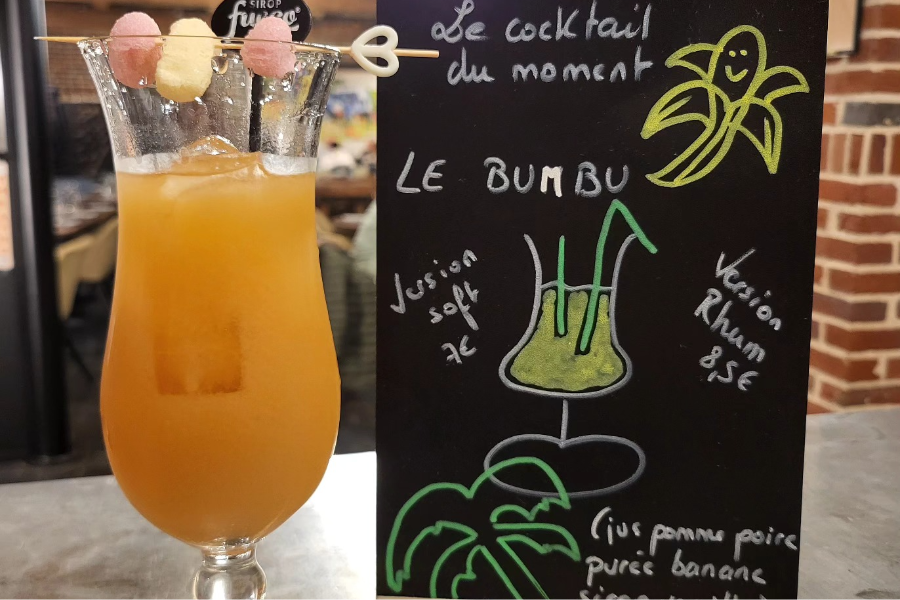 SIROP
Le cocktail
du moment
LE BUMBU
Version
soft
7€
Version
Rhum
8,5€
(jus pomme poire
purée banane